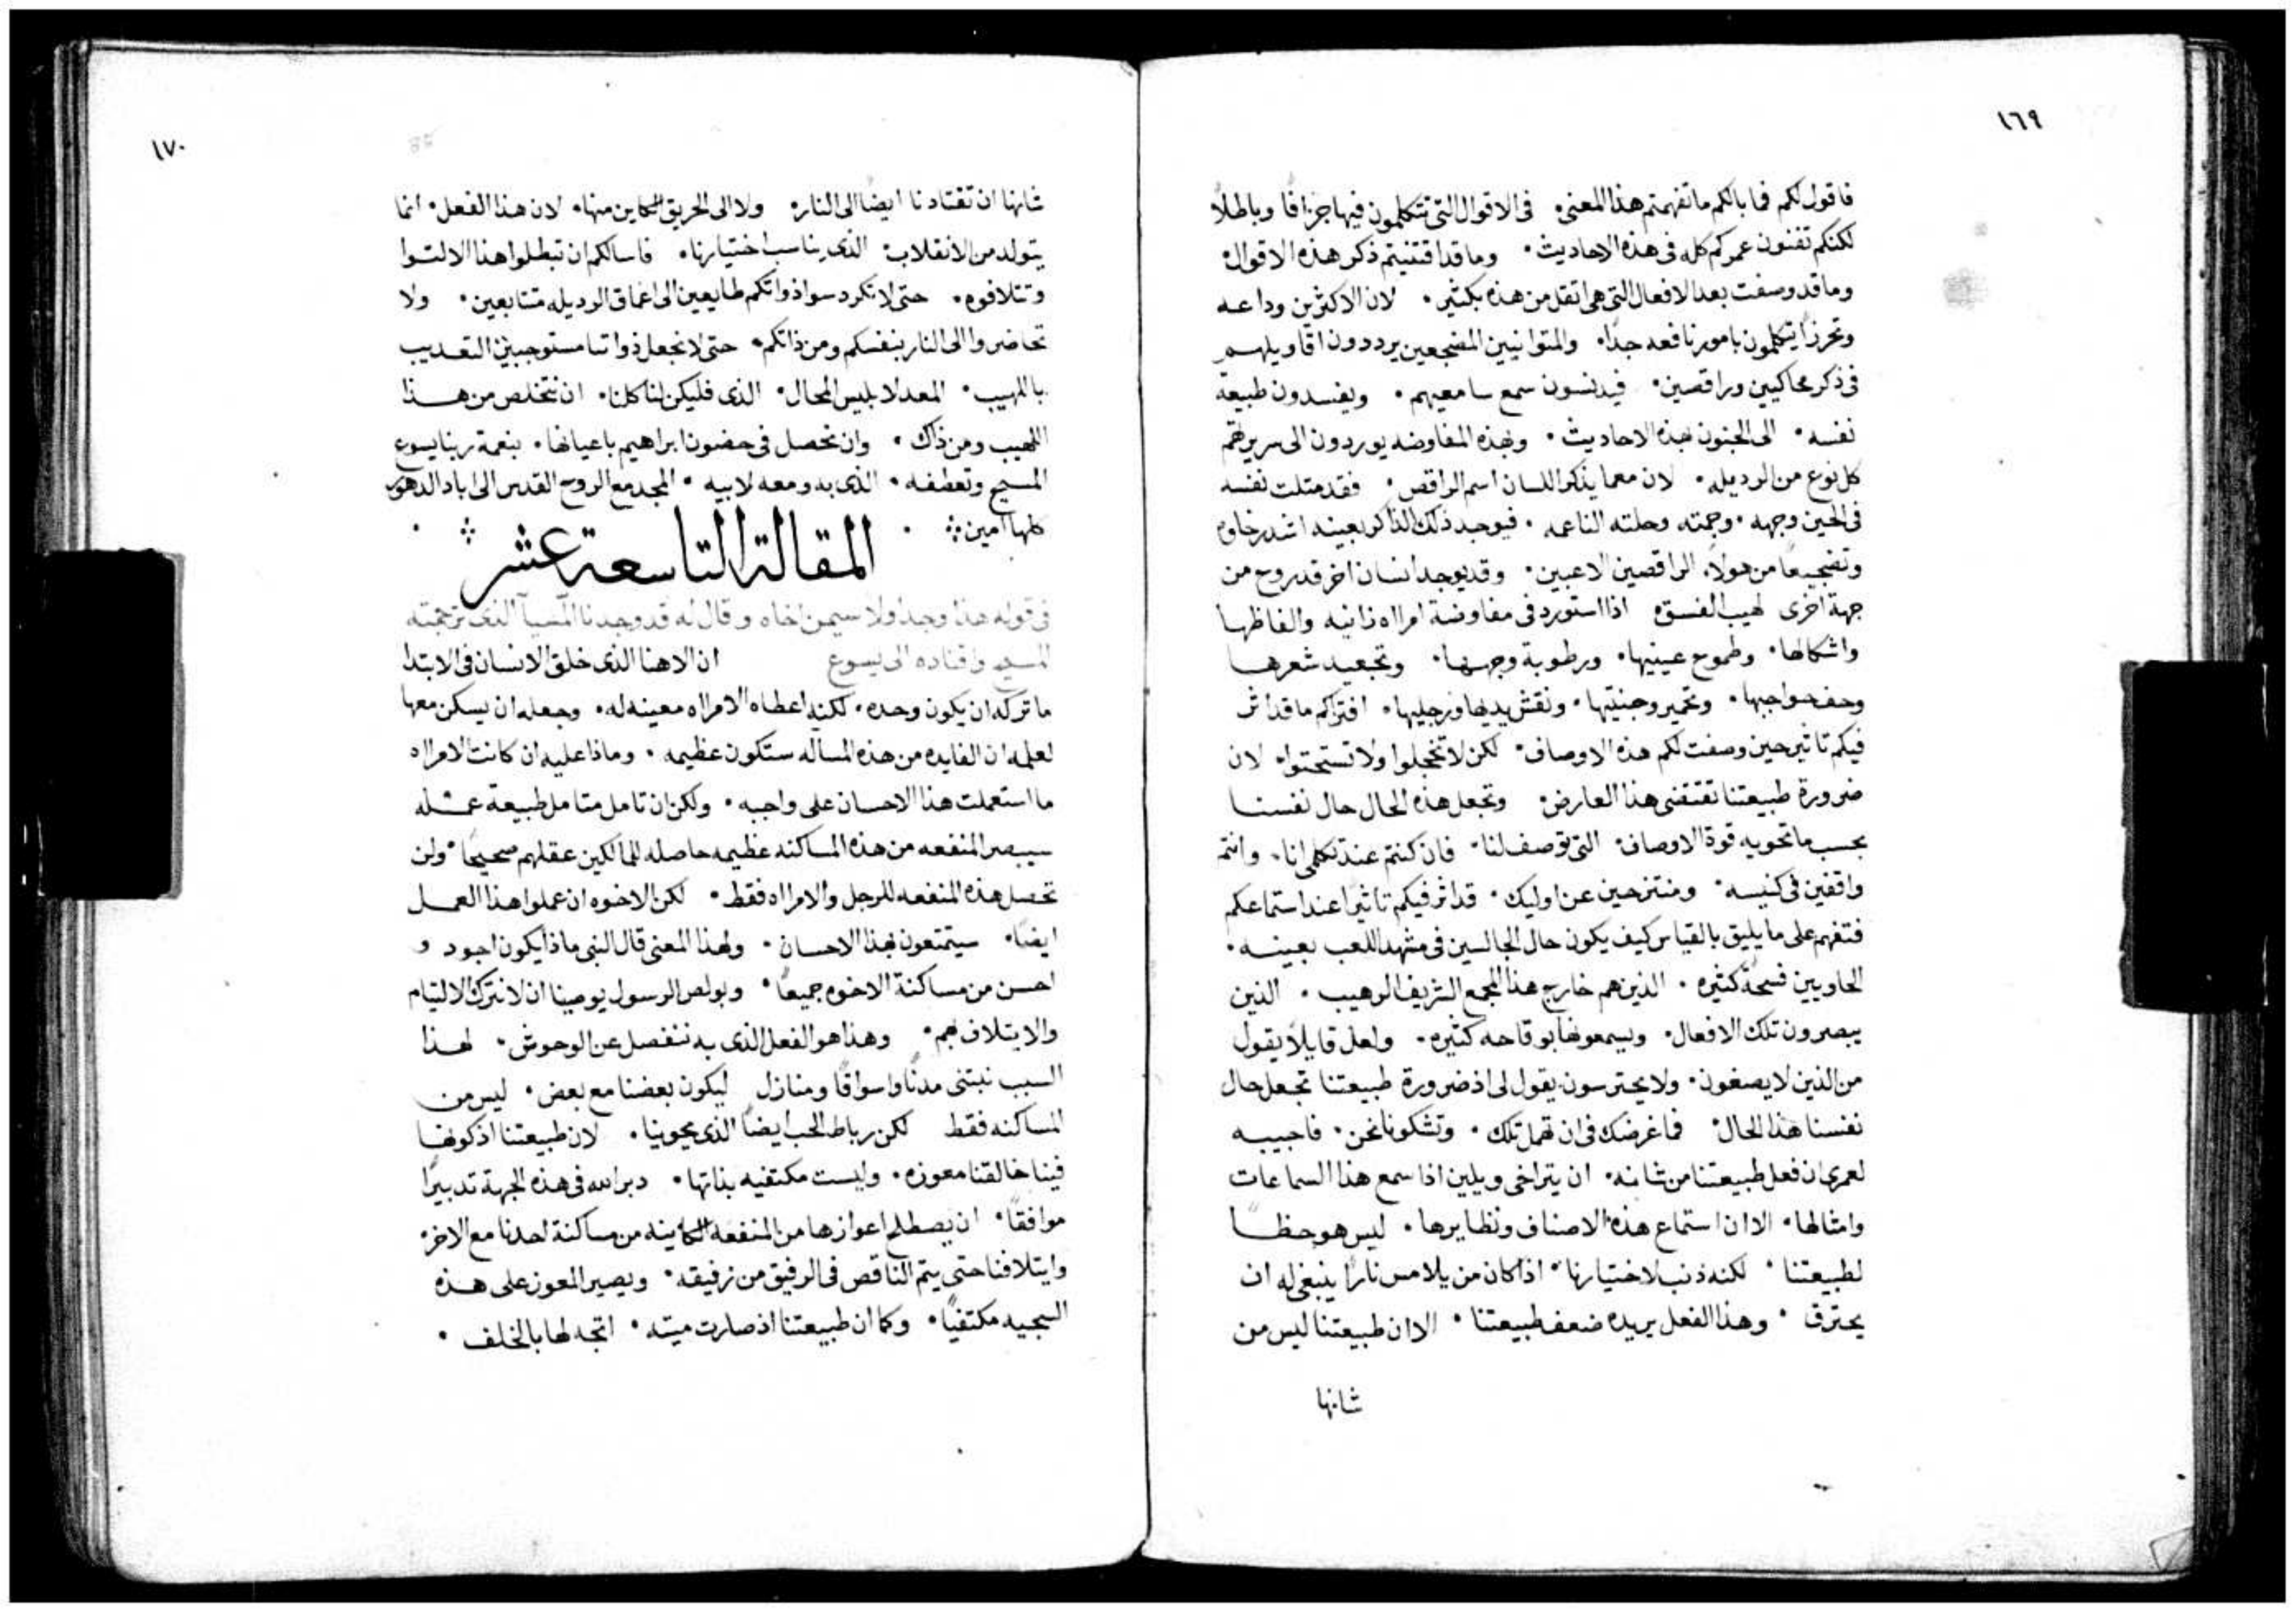 ١٦٩
فاقول لكم فما بالكم ما تفهمتم هذا المعنى۰ فى الاقوال التى تتكلمون فيها جزافًا وباطلاً
لكنكم تفنون عمركم كله فى هذه الاحاديث۰ وما قد اقتنيتم ذكر هذه الاقوال۰
وما قد وصفت بعد الافعال التى هى اثقل من هذه بكثير۰ لان الاكثرين وداعه
وتحرزًا يتكلمون بامور نافعه جدًا۰ والمتوانيين المضجعين يرددون اقاويلهم
فى ذكر محاكيين وراقصين۰ فيدنسون سمع سامعيهم۰ ويفسدون طبيعة
نفسه۰ الى الجنون بهذه الاحاديث۰ وبهذه المفاوضه يوردون الى سريرتهم
كل نوع من الرديله۰ لان معما يذكر اللسان اسم الراقص۰ فقد مثلت نفسه
فى الحين وجهه۰ وجمته وحلته الناعمه۰ فيوجد ذلك الذاكر بعينه اشد رخاوه
وتضجيعًا من هولاء الراقصين الاعبين۰ وقد يوجد انسان اخر قد روح من
جهة اخرى لهيب الفسق۰ اذا استورد فى مفاوضة امراه زانيه والفاظها
واشكالها۰ وطموح عينيها۰ ورطوبة وجهها۰ وتجعيد شعرها
وحف حواجبها۰ وتحمير وجنتيها۰ ونقش يديها ورجليها۰ افتراكم ما قد اثر
فيكم تاثير حين وصفت لكم هذه الاوصاف۰ لكن لا تخجلوا ولا تستحتوا۰ لان
ضرورة طبيعتنا تقتضى هذا العارض۰ وتجعل هذه الحال حال نفسنا
بحسب ما تحويه قوة الاوصاف۰ التى توصف لنا۰ فان كنتم عند تكلمى انا۰ وانتم
واقفين فى كنيسه۰ ومنتزحين عن اوليك۰ قد اثر فيكم تاثيرًا عند استماعكم
فتفهم على ما يليق بالقياس كيف يكون حال الجالسين فى مشهد اللعب بعينه۰
الحاويين فسحة كثيره۰ الذين هم خارج هذا المجمع الشريف الرهيب۰ الذين
يبصرون تلك الافعال۰ ويسمعونها بوقاحه كثيره۰ ولعل قايلاً يقول
من الذين لا يصغون۰ ولا يحترسون يقول لى اذ ضرورة طبيعتنا تجعل حال
نفسنا هذا الحال۰ فما غرضك فى ان تهمل تلك۰ وتشكونا نحن۰ فاجيبه
لعمرى ان فعل طبيعتنا من شانه۰ ان يتراخى ويلين اذا سمع هذا السماعات
وامثالها۰ الا ان استماع هذه الاصناف ونظايرها۰ ليس هو حظًا
لطبيعتنا۰ لكنه ذنب لاختيارنا۰ اذا كان من يلامس نارًا ينبغى له ان
يحترق۰ وهذا الفعل يريده ضعف طبيعتنا۰ الا ان طبيعتنا ليس من
شانها
١٧٠
شانها ان تقتادنا ايضًا الى النار۰ ولا الى الحريق الكاين منها۰ لان هذا الفعل۰ انما
يتولد من الانقلاب۰ الذى يناسب اختيارنا۰ فاسالكم ان تبطلوا هذا الالتوا
وتتلافوه۰ حتى لا تكردسوا ذواتكم طايعين الى اعماق الرديله متتابعين۰ ولا
تحاضروا الى النار بنفسكم ومن ذاتكم۰ حتى لا نجعل ذواتنا مستوجبين التعديب
باللهيب۰ المعد لابليس المحال۰ الذى فليكن لنا كلنا۰ ان نتخلص من هذا
اللهيب ومن ذاك۰ وان نحصل فى حضون ابراهيم باعيانها۰ بنعمة ربنا يسوع
المسيح وتعطفه۰ الذى به ومعه لابيه۰ المجد مع الروح القدس الى اباد الدهور
كلها امين
المقالة التاسعة عشر
فى قوله هذا وجد اولا سيمن اخاه وقال له قد وجدنا المسيا الذى ترجمته
المسيح واقتاده الى يسوع ان الاهنا الذى خلق الانسان فى الابتدا
ما تركه ان يكون وحده۰ لكنه اعطاه الامراه معينه له۰ وجعله ان يسكن معها
لعلمه ان الفايده من هذه المساله ستكون عظيمه۰ وماذا عليه ان كانت الامراه
ما استعملت هذا الاحسان على واجبه۰ ولكن ان تامل متامل طبيعة عمله
سيبصر المنفعه من هذه المساكنه عظيمه حاصله للمالكين عقلهم صحيحًا۰ ولن
تحصل هذه المنفعه للرجل والامراه فقط۰ لكن الاخوه ان عملوا هذا العمل
ايضًا۰ سيتمتعون بهذا الاحسان۰ ولهذا المعنى قال النبى ماذا يكون اجود و
احسن من مساكنة الاخوه جميعًا۰ وبولص الرسول يوصينا ان لا نترك الالتيام
والايتلاف بهم۰ وهذا هو الفعل الذى به ننفصل عن الوحوش۰ لهذا
السبب نبتنى مدنًا واسواقًا ومنازل ليكون بعضنا مع بعض۰ ليس من
المساكنه فقط لكن رباط الحب ايضًا الذى يحوينا۰ لان طبيعتنا اذ كونها
فينا خالقنا معوزه۰ وليست مكتفيه بذاتها۰ دبر الله فى هذه الجهة تدبيرًا
موافقًا۰ ان يصطلح اعوازها من المنفعه الكاينه من مساكنة احدنا مع الاخر۰
وايتلافنا حتى يتم الناقص فى الرفيق من رفيقه۰ ويصير المعوز على هذه
السجيه مكتفيًا۰ وكما ان طبيعتنا اذ صارت ميته۰ اتجه لها بالخلف۰